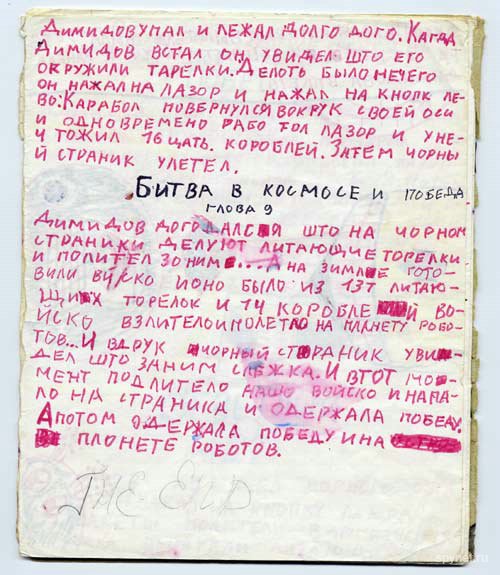 ДИМИДОВ УПАЛ И ЛЕЖАЛ ДОЛГО ДОГО. КАГДА
ДИМИДОВ ВСТАЛ ОН УВИДЕЛ ШТО ЕГО
ОКРУЖИЛИ ТАРЕЛКИ. ДЕЛОТЬ БЫЛО НЕЧЕГО
ОН НАЖАЛ НА ЛАЗОР И НАЖАЛ НА КНОПК ЛЕ-
ВО. КАРАБОЛ ПОВЕРНУЛСЯ ВОКРУК СВОЕЙ ОСИ
И ОДНОВРЕМЕНО РАБОТОЛ ЛАЗОР И УНЕ-
ЧТОЖИЛ 16ЦАТЬ. КОРОБЛЕЙ. ЗАТЕМ ЧОРНЫ
Й СТРАНИК УЛЕТЕЛ.
БИТВА В КОСМОСЕ И ПОБЕДА
ГЛОВА 9
ДИМИДОВ ДОГОДАЛСЯ ШТО НА ЧОРНОМ
СТРАНИКИ ДЕЛУЮТ ЛИТАЮЩИЕ ТОРЕЛКИ
И ПОЛИТЕЛ ЗО НИМ... А НА ЗИМЛЕ ГОТО-
ВИЛИ ВИСКО ИОНО БЫЛО ИЗ 13Т ЛИТАЮ-
ЩИХ ТОРЕЛОК И 14 КОРОБЛЕЙ ВО-
ЙСКО ВЗЛИТЕЛО И ПОЛЕТЛО НА ПЛАНЕТУ РОБО-
ТОВ... И ВДРУК ЧОРНЫЙ СТРАНИК УВИ-
ДЕЛ ШТО ЗАНИМ СЛЕЖКА. И ВТОТ МО-
МЕНТ ПОДЛИТЕЛО НАШО ВОЙСКО И НАПА-
ЛО НА СТРАНИКА И ОДЕРЖАЛА ПОБЕДУ.
А ПОТОМ ОДЕРЖАЛА ПОБЕДУ И НА
ПЛОНЕТЕ РОБОТОВ.
THE END
spynet.ru